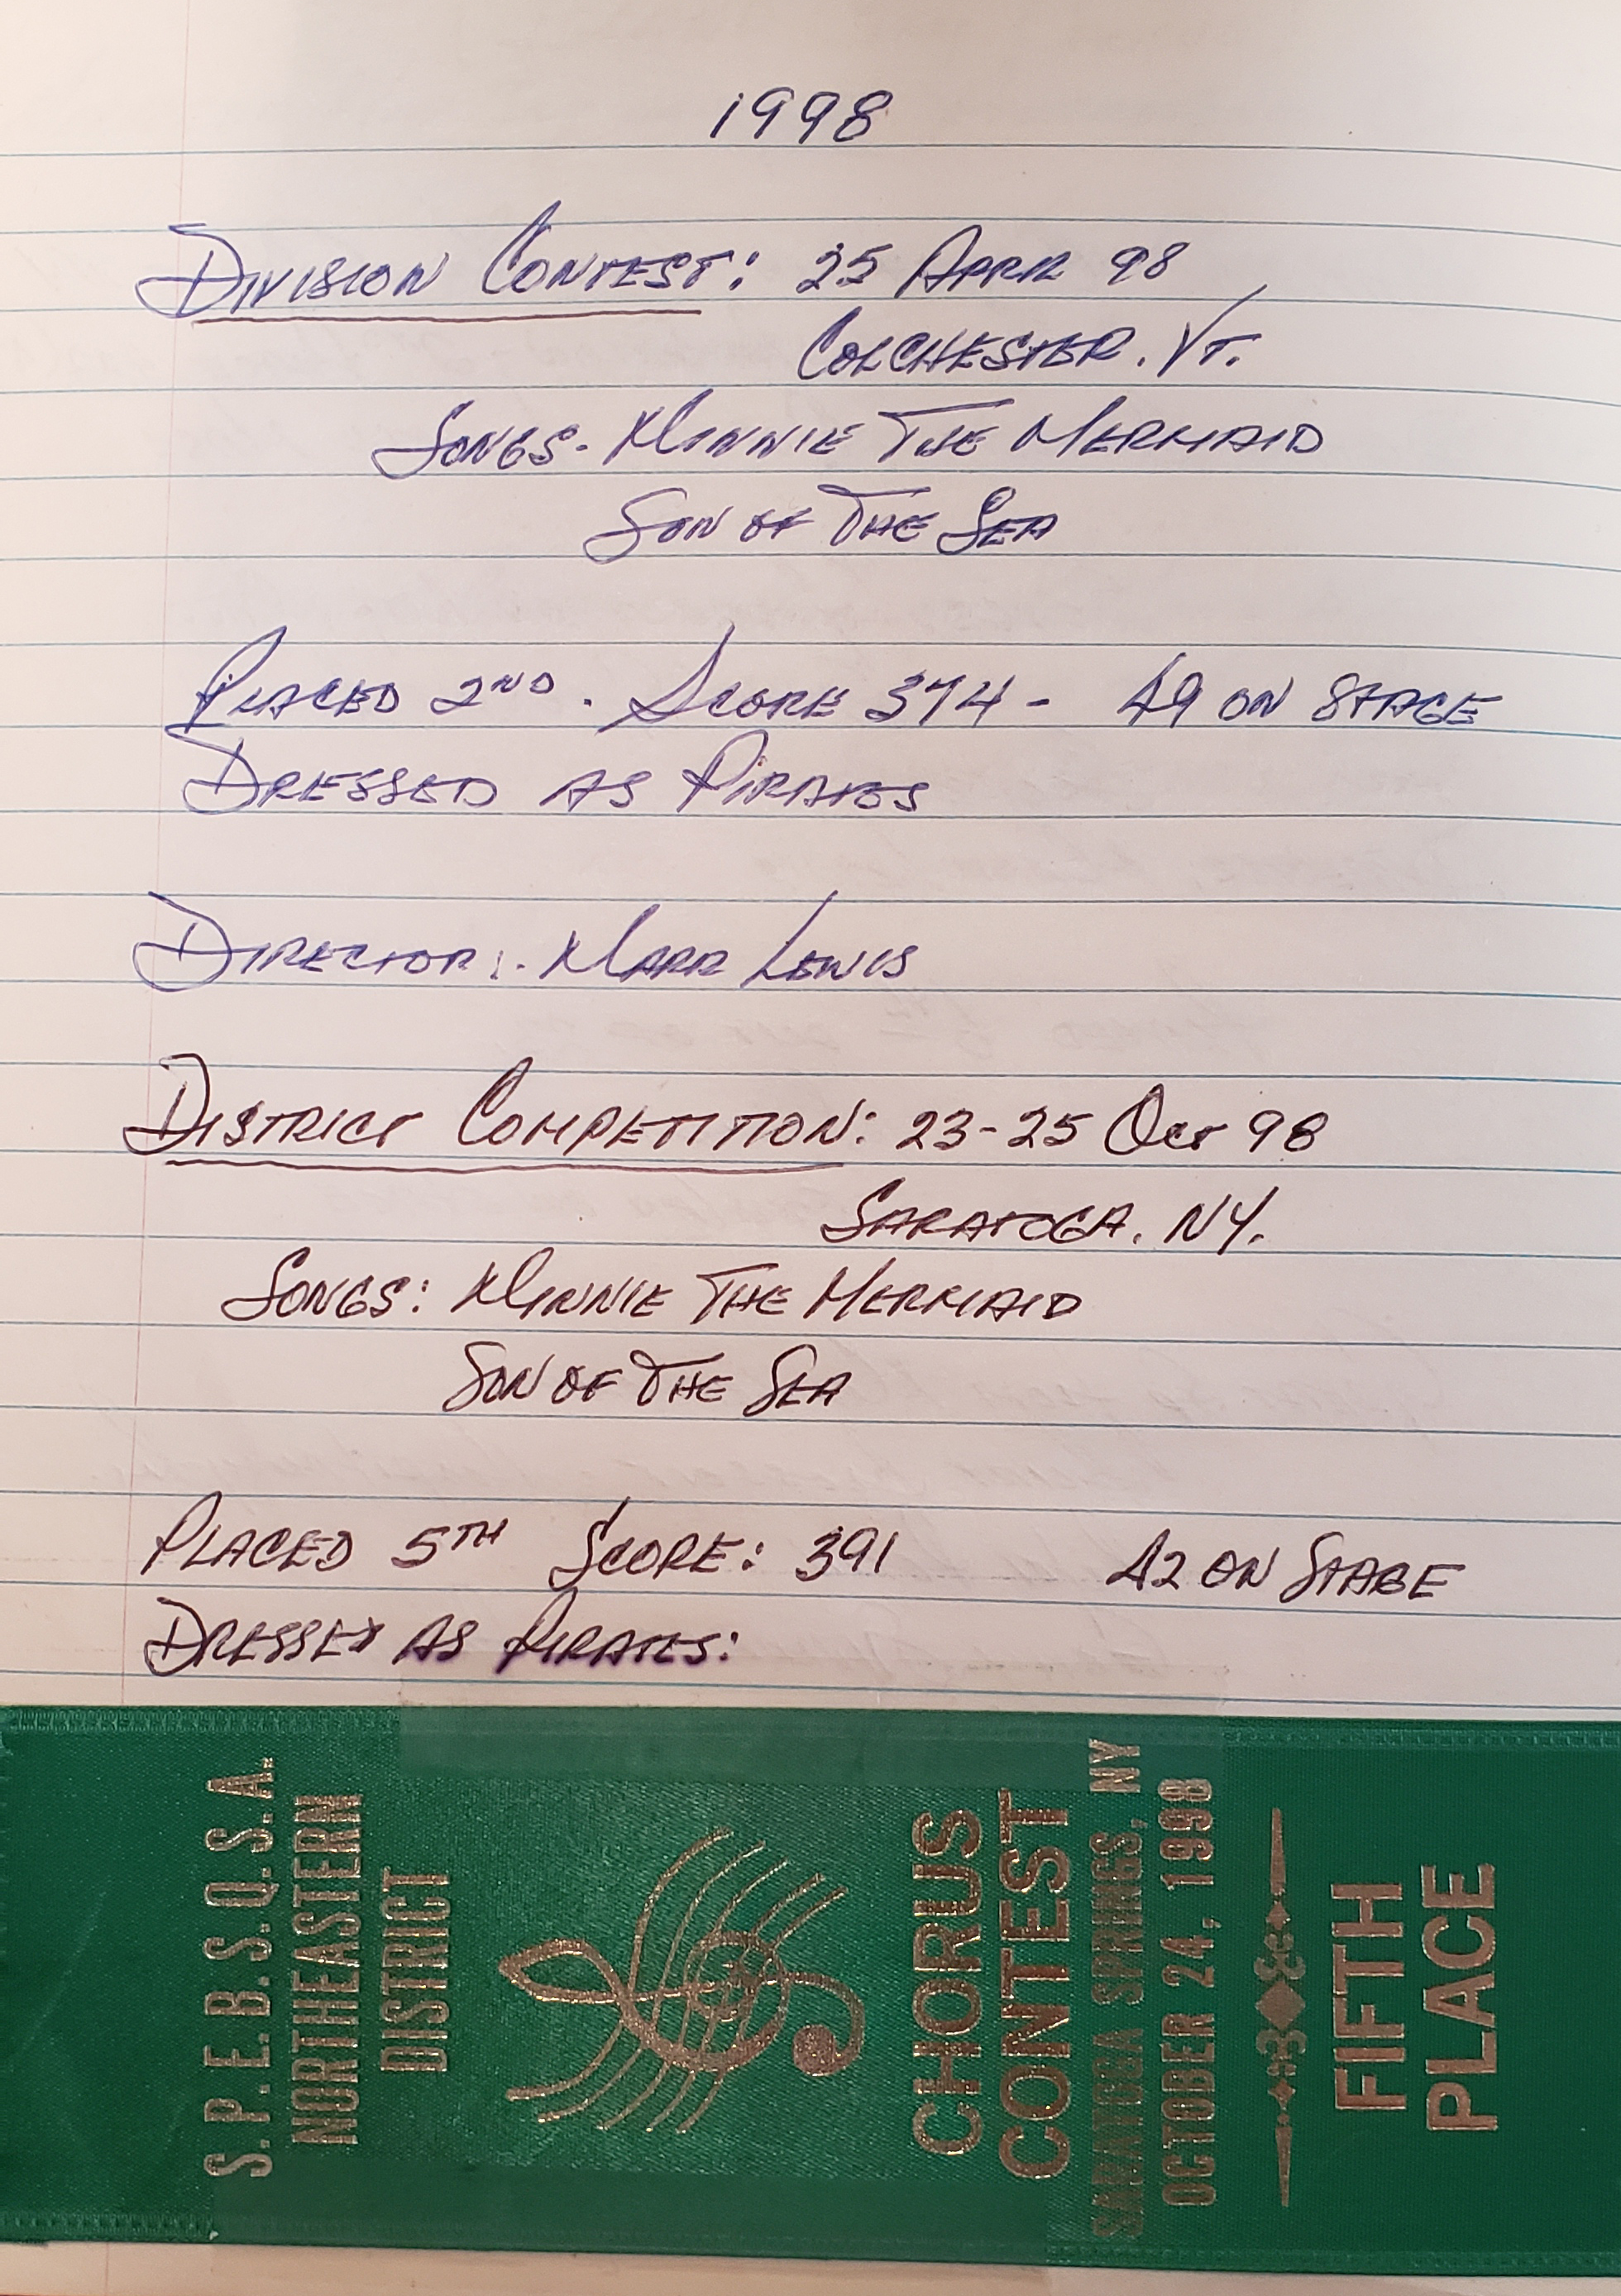 1998
DIVISION CONTEST: 25 APRIL 98
COLCHESTER. VT.
SONGS- MINNIE THE MERMAID
SON OF THE SEA
PLACED 2ND. SCORE 374 - 49 ON STAGE
DRESSED AS PIRATES
DIRECTOR: MARK LEWIS
DISTRICT COMPETITION: 23-25 OCT 98
SARATOGA. NY.
SONGS: MINNIE THE MERMAID
SON OF THE SEA
PLACED 5TH SCORE: 391 42 ON STAGE
DRESSED AS PIRATES:
S.P.E.B.S.Q.S.A.
NORTHEASTERN
DISTRICT
CHORUS
CONTEST
SARATOGA SPRINGS, NY
OCTOBER 24, 1998
FIFTH
PLACE